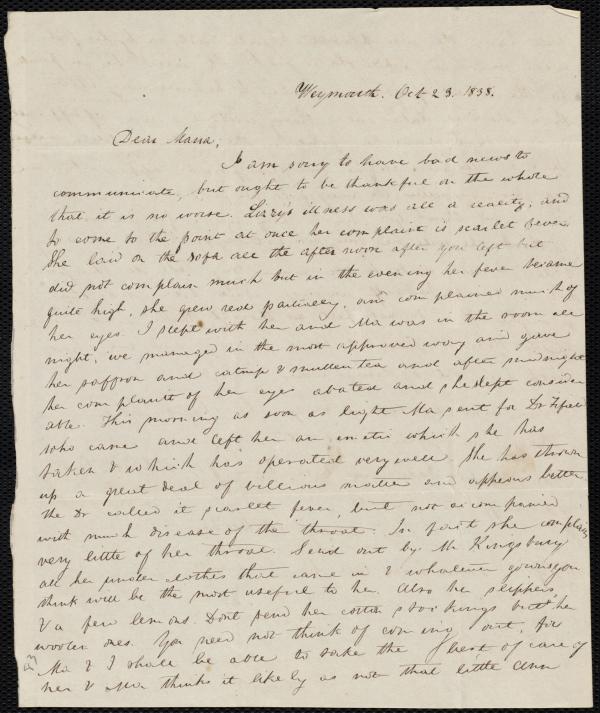 Weymouth. Oct 23. 1838.
Dear Maria,
I am sorry to have bad news to
communicate, but ought to be thankful on the whole
that it is no worse. Lizzy's illness was all a reality, and
to come to the point at once her complaint is scarlet fever.
She laid on the sofa all the afternoon after you left but
did not complain much but in the evening her fever became
quite high, she grew red partially, and complained much of
her eyes. I slept with her and Ma was in the room all
night, we managed in the most approved way and gave
her saffron and catnip & mullen tea and after midnight
her complaints of her eyes abated and she slept consider
able. This morning as soon as light Ma sent for Dr Fifield
who came and left her an emetic which she has
taken & which has operated very well She has thrown
up a great deal of billious matter and appears better
the Dr called it scarlet fever, but not accompanied
with much disease of the throat. In fact she complains
very little of her throat. Send out by Mr Kingsbury
all her under clothes that came in & whatever gowns you
think will be the most useful to her. Also her slippers,
& a few lemons. Dont send her cotton stockings but her
woolen ones. You need not think of coming out, for
Ma & I shall be able to take the best of care of
her & Ma thinks it likely as not that little Ann